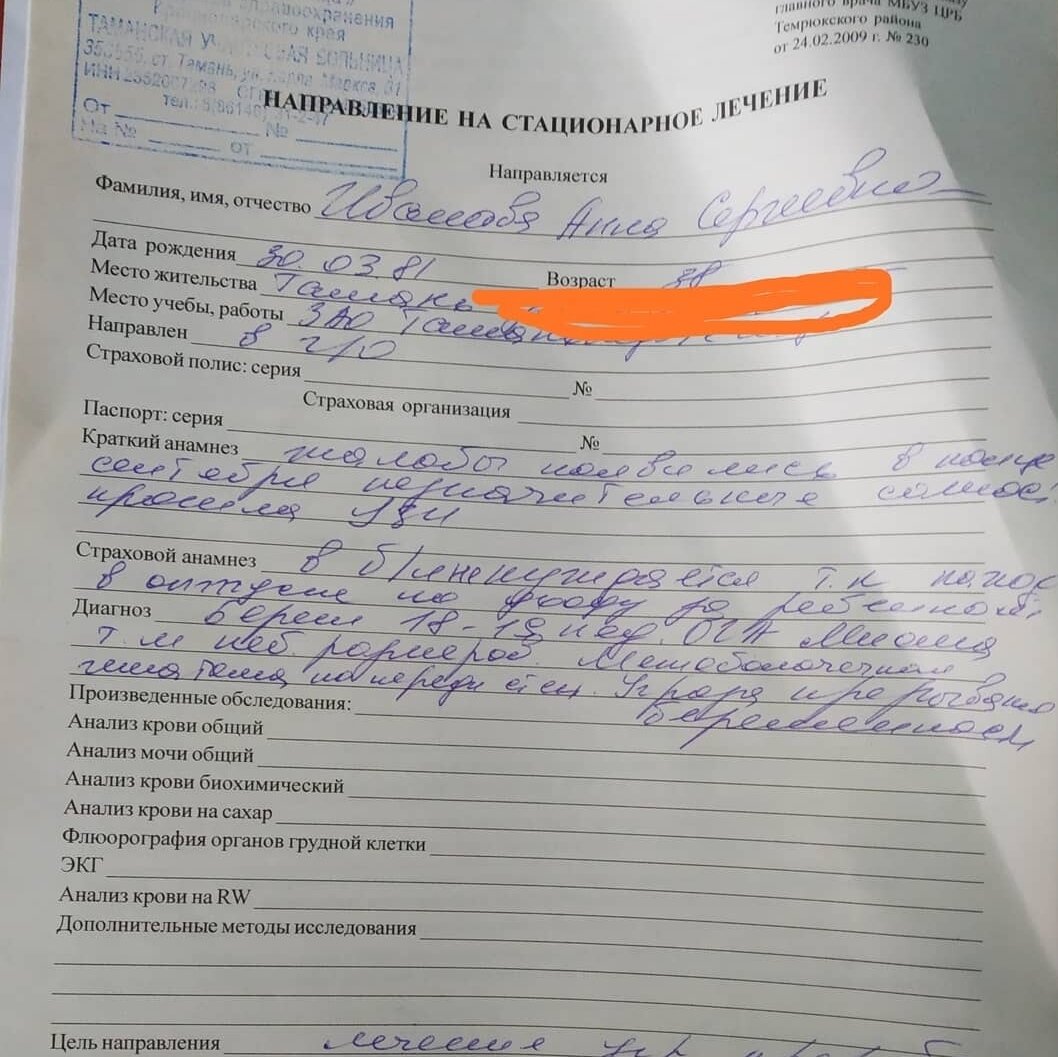 здравоохранения
Краснодарского края
ТАМАНСКАЯ УЧАСТКОВАЯ БОЛЬНИЦА
ст. Тамань, ул. Карла Маркса,
ИНН
тел.:
От № 
На № от
главного врача МБУЗ ЦРБ
Темрюкского района
от 24.02.2009 г. № 230
НАПРАВЛЕНИЕ НА СТАЦИОНАРНОЕ ЛЕЧЕНИЕ
Направляется
Фамилия, имя, отчество Иванова Анна Сергеевна
Дата рождения 30.03.81 Возраст 38
Место жительства Тамань
Место учебы, работы ЗАО
Направлен в г/о
Страховой полис: серия №
Страховая организация
Паспорт: серия №
Краткий анамнез жалобы появились в конце
сентября незначительные
прошла УЗИ
Страховой анамнез в б/л не нуждается т.к наход
в отпуске по уходу за ребенком
Диагноз Берем 18-19 нед. ОГА Миома
т.м неб. размеров. Метоболочечная
гематома по передн стен. Угроза прерывания
беременности
Произведенные обследования:
Анализ крови общий
Анализ мочи общий
Анализ крови биохимический
Анализ крови на сахар
Флюорография органов грудной клетки
ЭКГ
Анализ крови на RW
Дополнительные методы исследования
Цель направления лечение